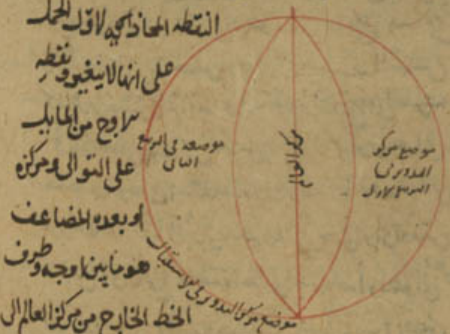 النقطه المحاذيه لاول الحمل
على انها لا يتغير ونقطه
اوج من المايل
على التوالى ومركزه
او بعده المضاعف
هو ما بين اوجه وطرف
الخط الخارج من مركز العالم الى
موضعه فى الربع
الثانى
مركز العالم
موضع مركز
التدوير فى
الربع الاول
موضع مركز التدوير فى الاستقبال